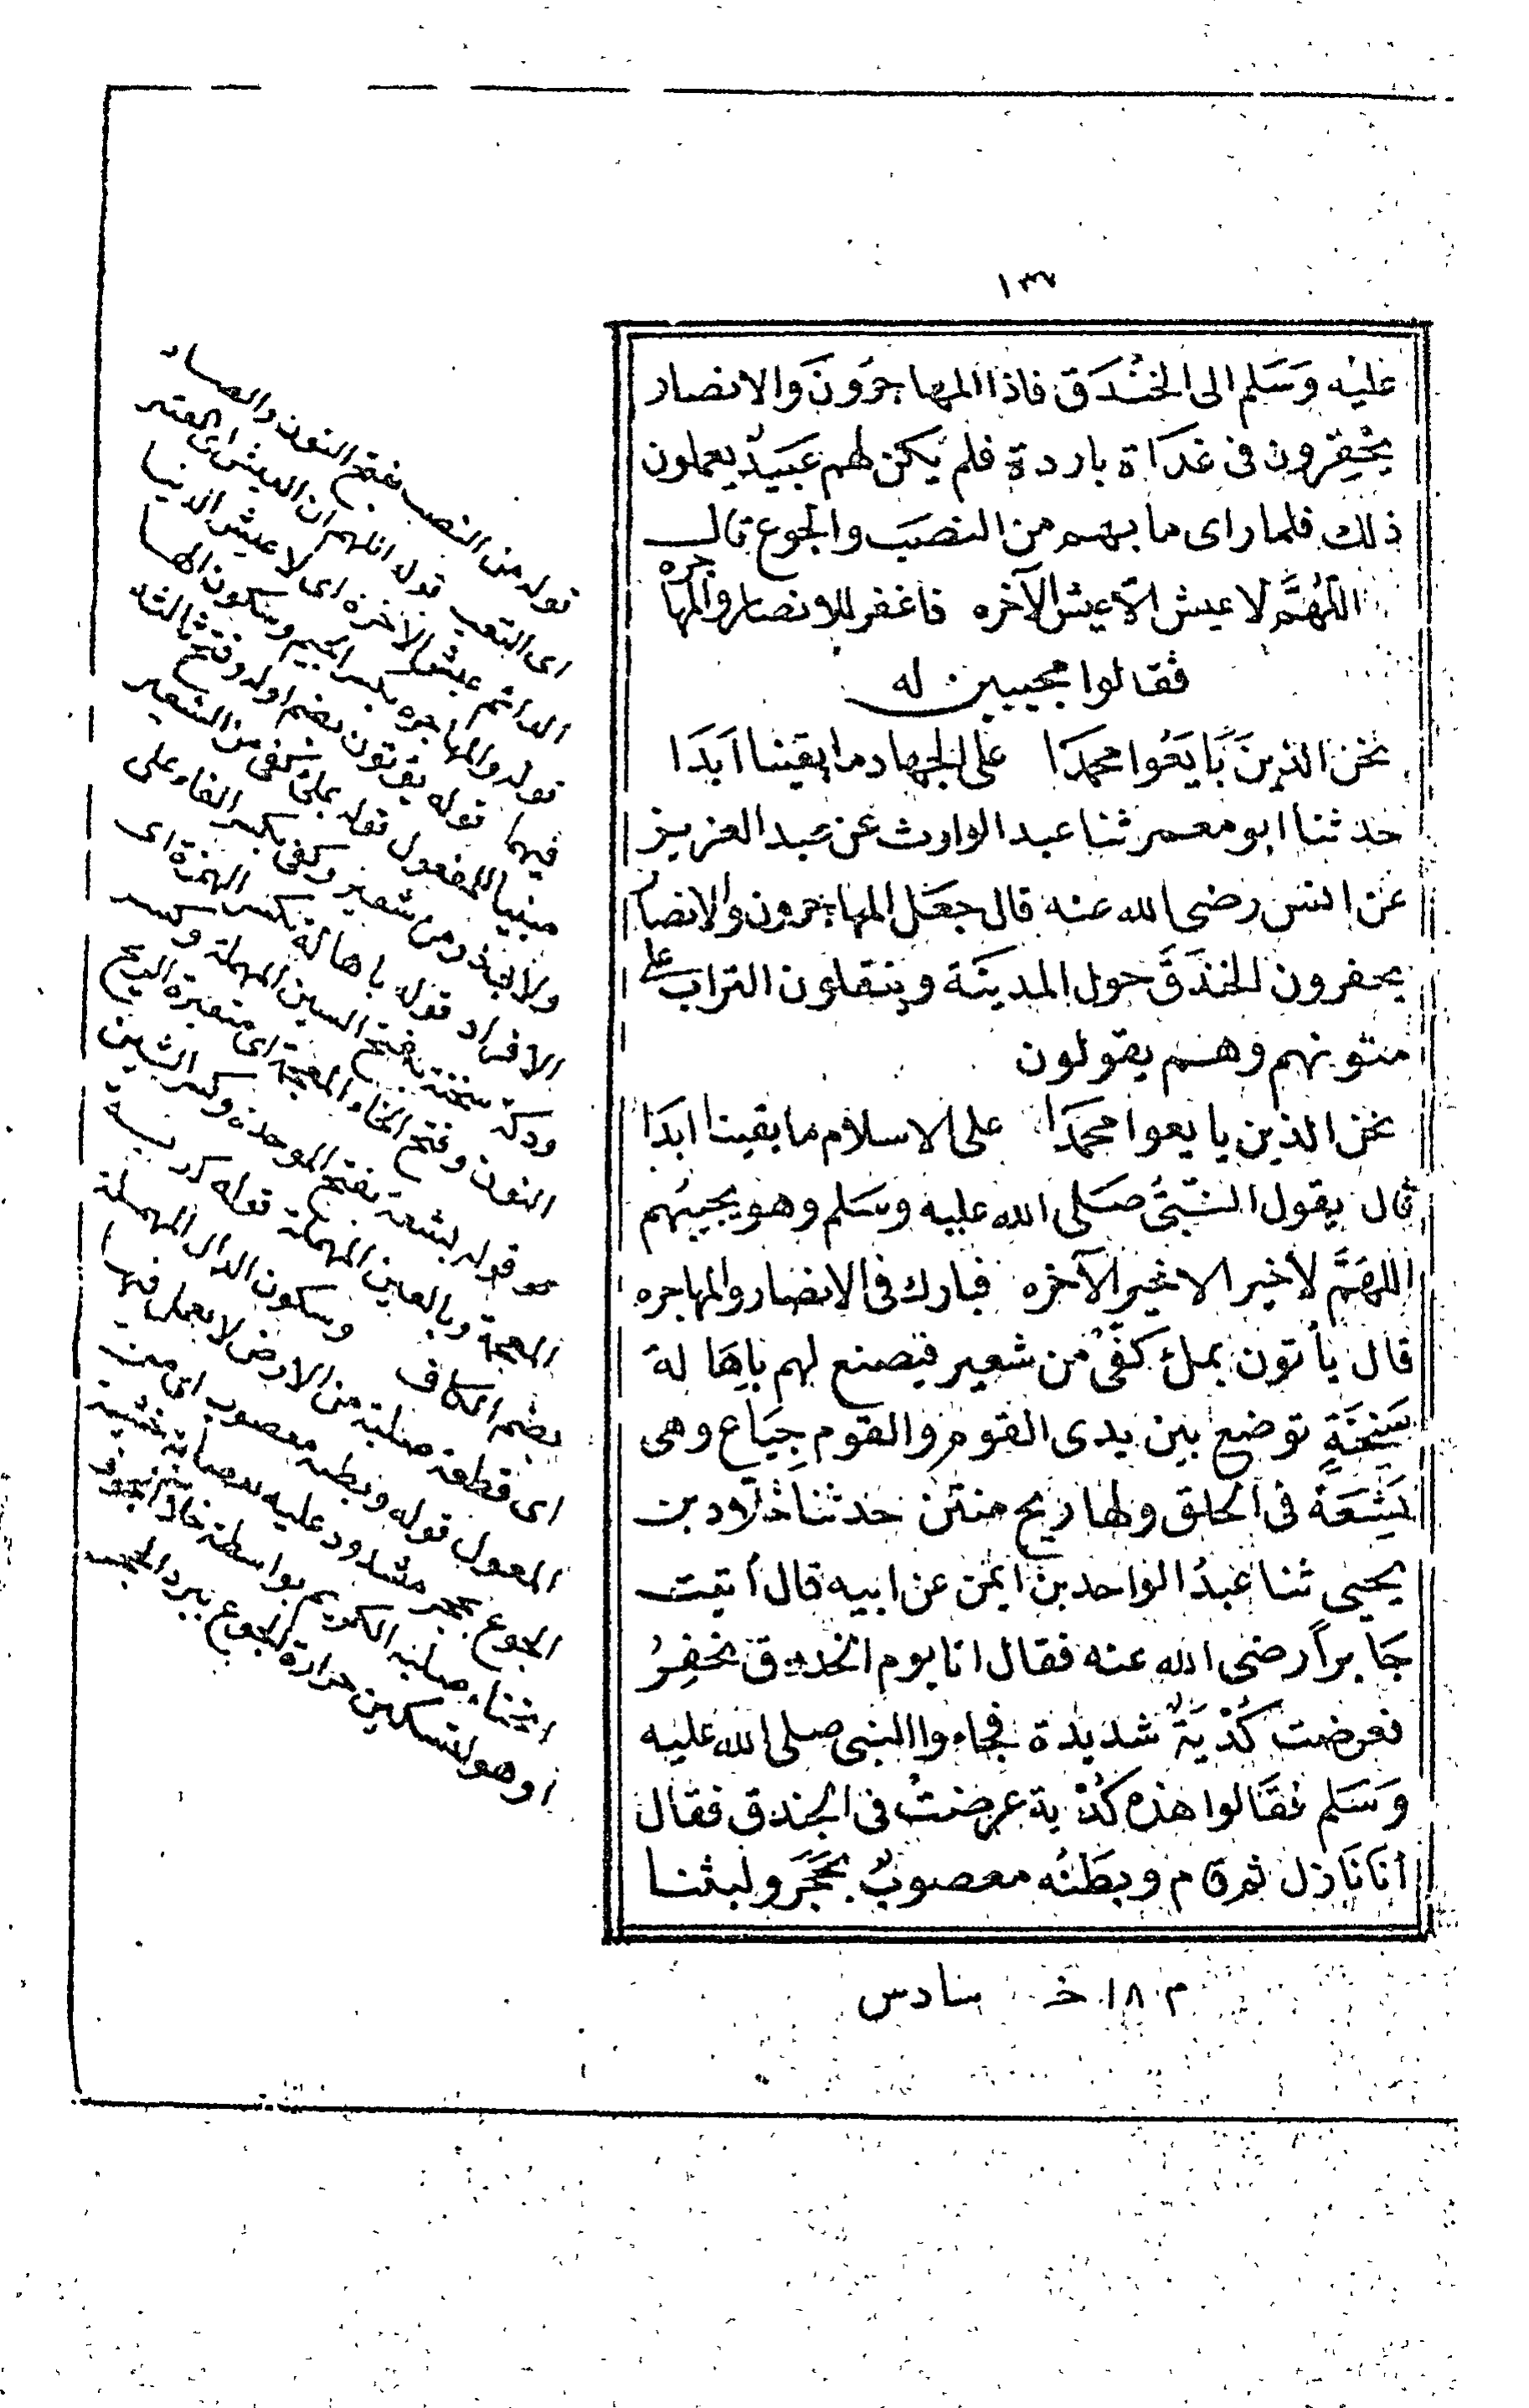 ١٣٧
عليْه وَسَلم الى الخنْدَق فاذا المهاجرَونَ والانصار
يحْفِرون فى غدَاة باردة فلم يَكن لهم عَبيدٌ يعملون
ذلك فلما راى ما بهم من النصَب والجوع قال
اللهُمَّ لا عيش الاّ عيش الآخره فاغفر للانصار والمهاجره
فقالوا مجيبين له
نحن الذينَ بَايَعُوا محمدَا على الجهاد ما بقينا اَبَدَا
حدثنا ابو معمر ثنا عبد الوارث عن عبد العزيز
عن انس رضى الله عنه قال جعَل المهاجرون والانصار
يحفرون الخندَقَ حول المدينَة وينقلون التراب على
متونهم وهم يقولون
نحن الذين بايعوا محمدَا على الاسلام ما بقينا ابدَا
قال يقول النبىُّ صَلى الله عليه وسَلم وهو يجيبُهم
اللهَمَّ لاخير الا خير الآخره فبارك فى الانصار والمهاجره
قال يأتون بملئ كفّى من شعير فيصنع لهم باِهَا لة
سَنِخَةٍ توضع بين يدى القوم والقوم جِيَاع وهى
بَشِعَة فى الحلق ولها ريح منتن حدثنا خلاد بن
يحيى ثنا عبدُ الواحد بن ايمن عن ابيه قال أتيت
جَابراً رضى الله عنه فقال انا يوم الخندق نحفِرُ
فعرضت كُدْيَةٌ شديدة فجاءوا النبى صلى الله عليه
وَسَلم فقَالوا هذه كُدْية عرضتْ فى الخندق فقال
أنَا نَازل ثم قام وبطَنُه معصوبٌ بحَجَر ولبثنا
م ١٨ خـ سادس
قوله من النصب بفتح النون والصاد
اى التعب قوله اللهم ان العيش اى المعتبر
الدائم عيش الآخره اى لا عيش الدنيا
قوله والمهاجره بكسر الجيم وسكون الها
فيهما قوله يؤتون بضم اوله وفتح ثالثه
مبنيا للمفعول قوله بملئ كفى من الشعير
ولابى ذر من شعير وكفى بكسر الفاء على
الافراد قوله باهالة بكسر الهمزة اى
ودكة سنخة بفتح السين المهملة وكسر
النون وفتح الخاء المعجمة اى متغيرة الريح
قوله بشعة بفتح الموحدة وكسر الشين
المعجمة وبالعين المهملة قوله كدية
بضم الكاف وسكون الدال المهملة
اى قطعة صلبة من الارض لا يعمل فيها
المعول قوله وبطنه معصوب اى من
الجوع بحجر مشدود عليه بعصابة خشية
انحناء صلبه الكريم بواسطة خلاء الجوف
او هو لتسكين حرارة الجوع ببرد الحجر